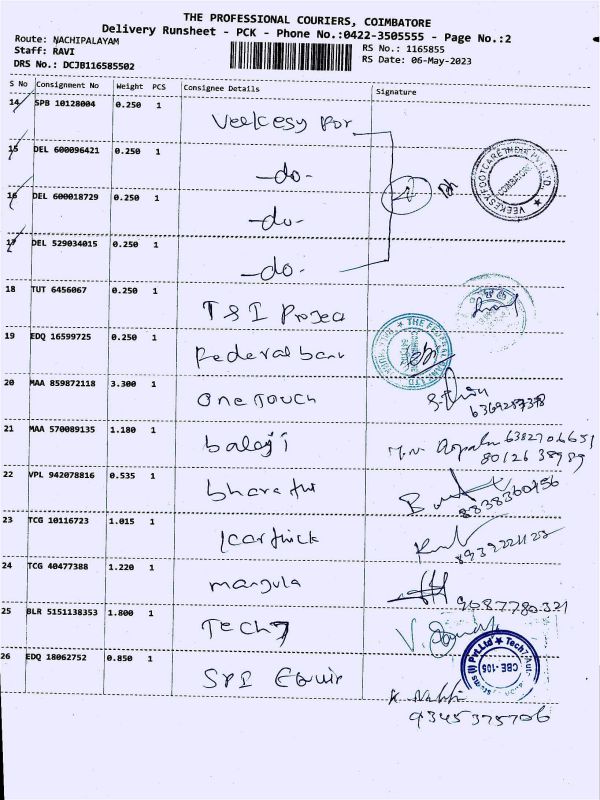 THE PROFESSIONAL COURIERS, COIMBATORE
Delivery Runsheet - PCK - Phone No.:0422-3505555 - Page No.:2
Route: NACHIPALAYAM
Staff: RAVI
DRS No.: DCJB116585502
RS No.: 1165855
RS Date: 06-May-2023
S No Consignment No Weight PCS Consignee Details Signature
14 SPB 10128004 0.250 1 Veekesy For
15 DEL 600096421 0.250 1 -do-
16 DEL 600018729 0.250 1 -do-
17 DEL 529034015 0.250 1 -do-
VEEKESY FOOTCARE INDIA PVT. LTD. COIMBATORE
18 TUT 6456067 0.250 1 T S I Projec
19 EDQ 16599725 0.250 1 Federal ban
THE FEDERAL BANK LTD
20 MAA 859872118 3.300 1 One Touch
21 MAA 570089135 1.180 1 balaji 6382706651
80126 38989
22 VPL 942078816 0.535 1 bharathi
8838360956
23 TCG 10116723 1.015 1 Karthick
24 TCG 40477388 1.220 1 manjula
9087780321
25 BLR 5151138353 1.800 1 Tech 7
Tech7 (I) Pvt.Ltd CBE -105
26 EDQ 18062752 0.850 1 SPI Equip
9345375706